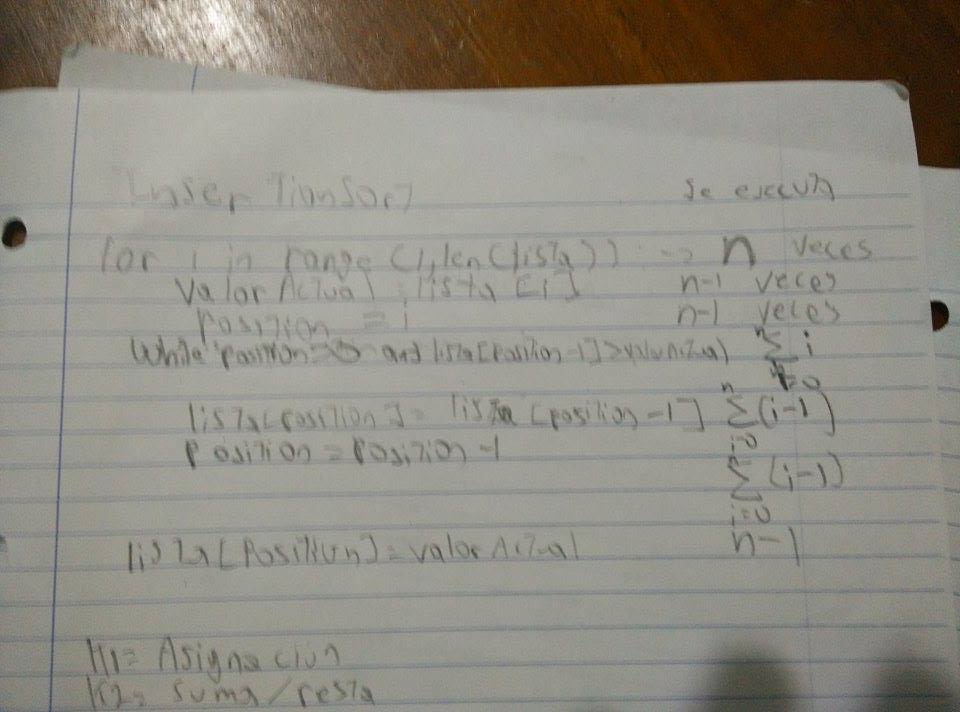 InserTionSorT se ejecuTa
for i in range (1,len(lisTa)) -> n veces
Valor AcTual = lisTa [i] n-1 veces
PosiTion = i n-1 veces
While position > 0 and lisTa[Position-1] > valorAcTual) n Σ i i=0
lisTa[posiTion] = lisTa [position -1] n Σ (i-1) i=0
PosiTion = PosiTion -1 n Σ (i-1) i=0
lisTa [PosiTion] = valor AcTual n-1
K1= Asignacion
K2= suma/resta